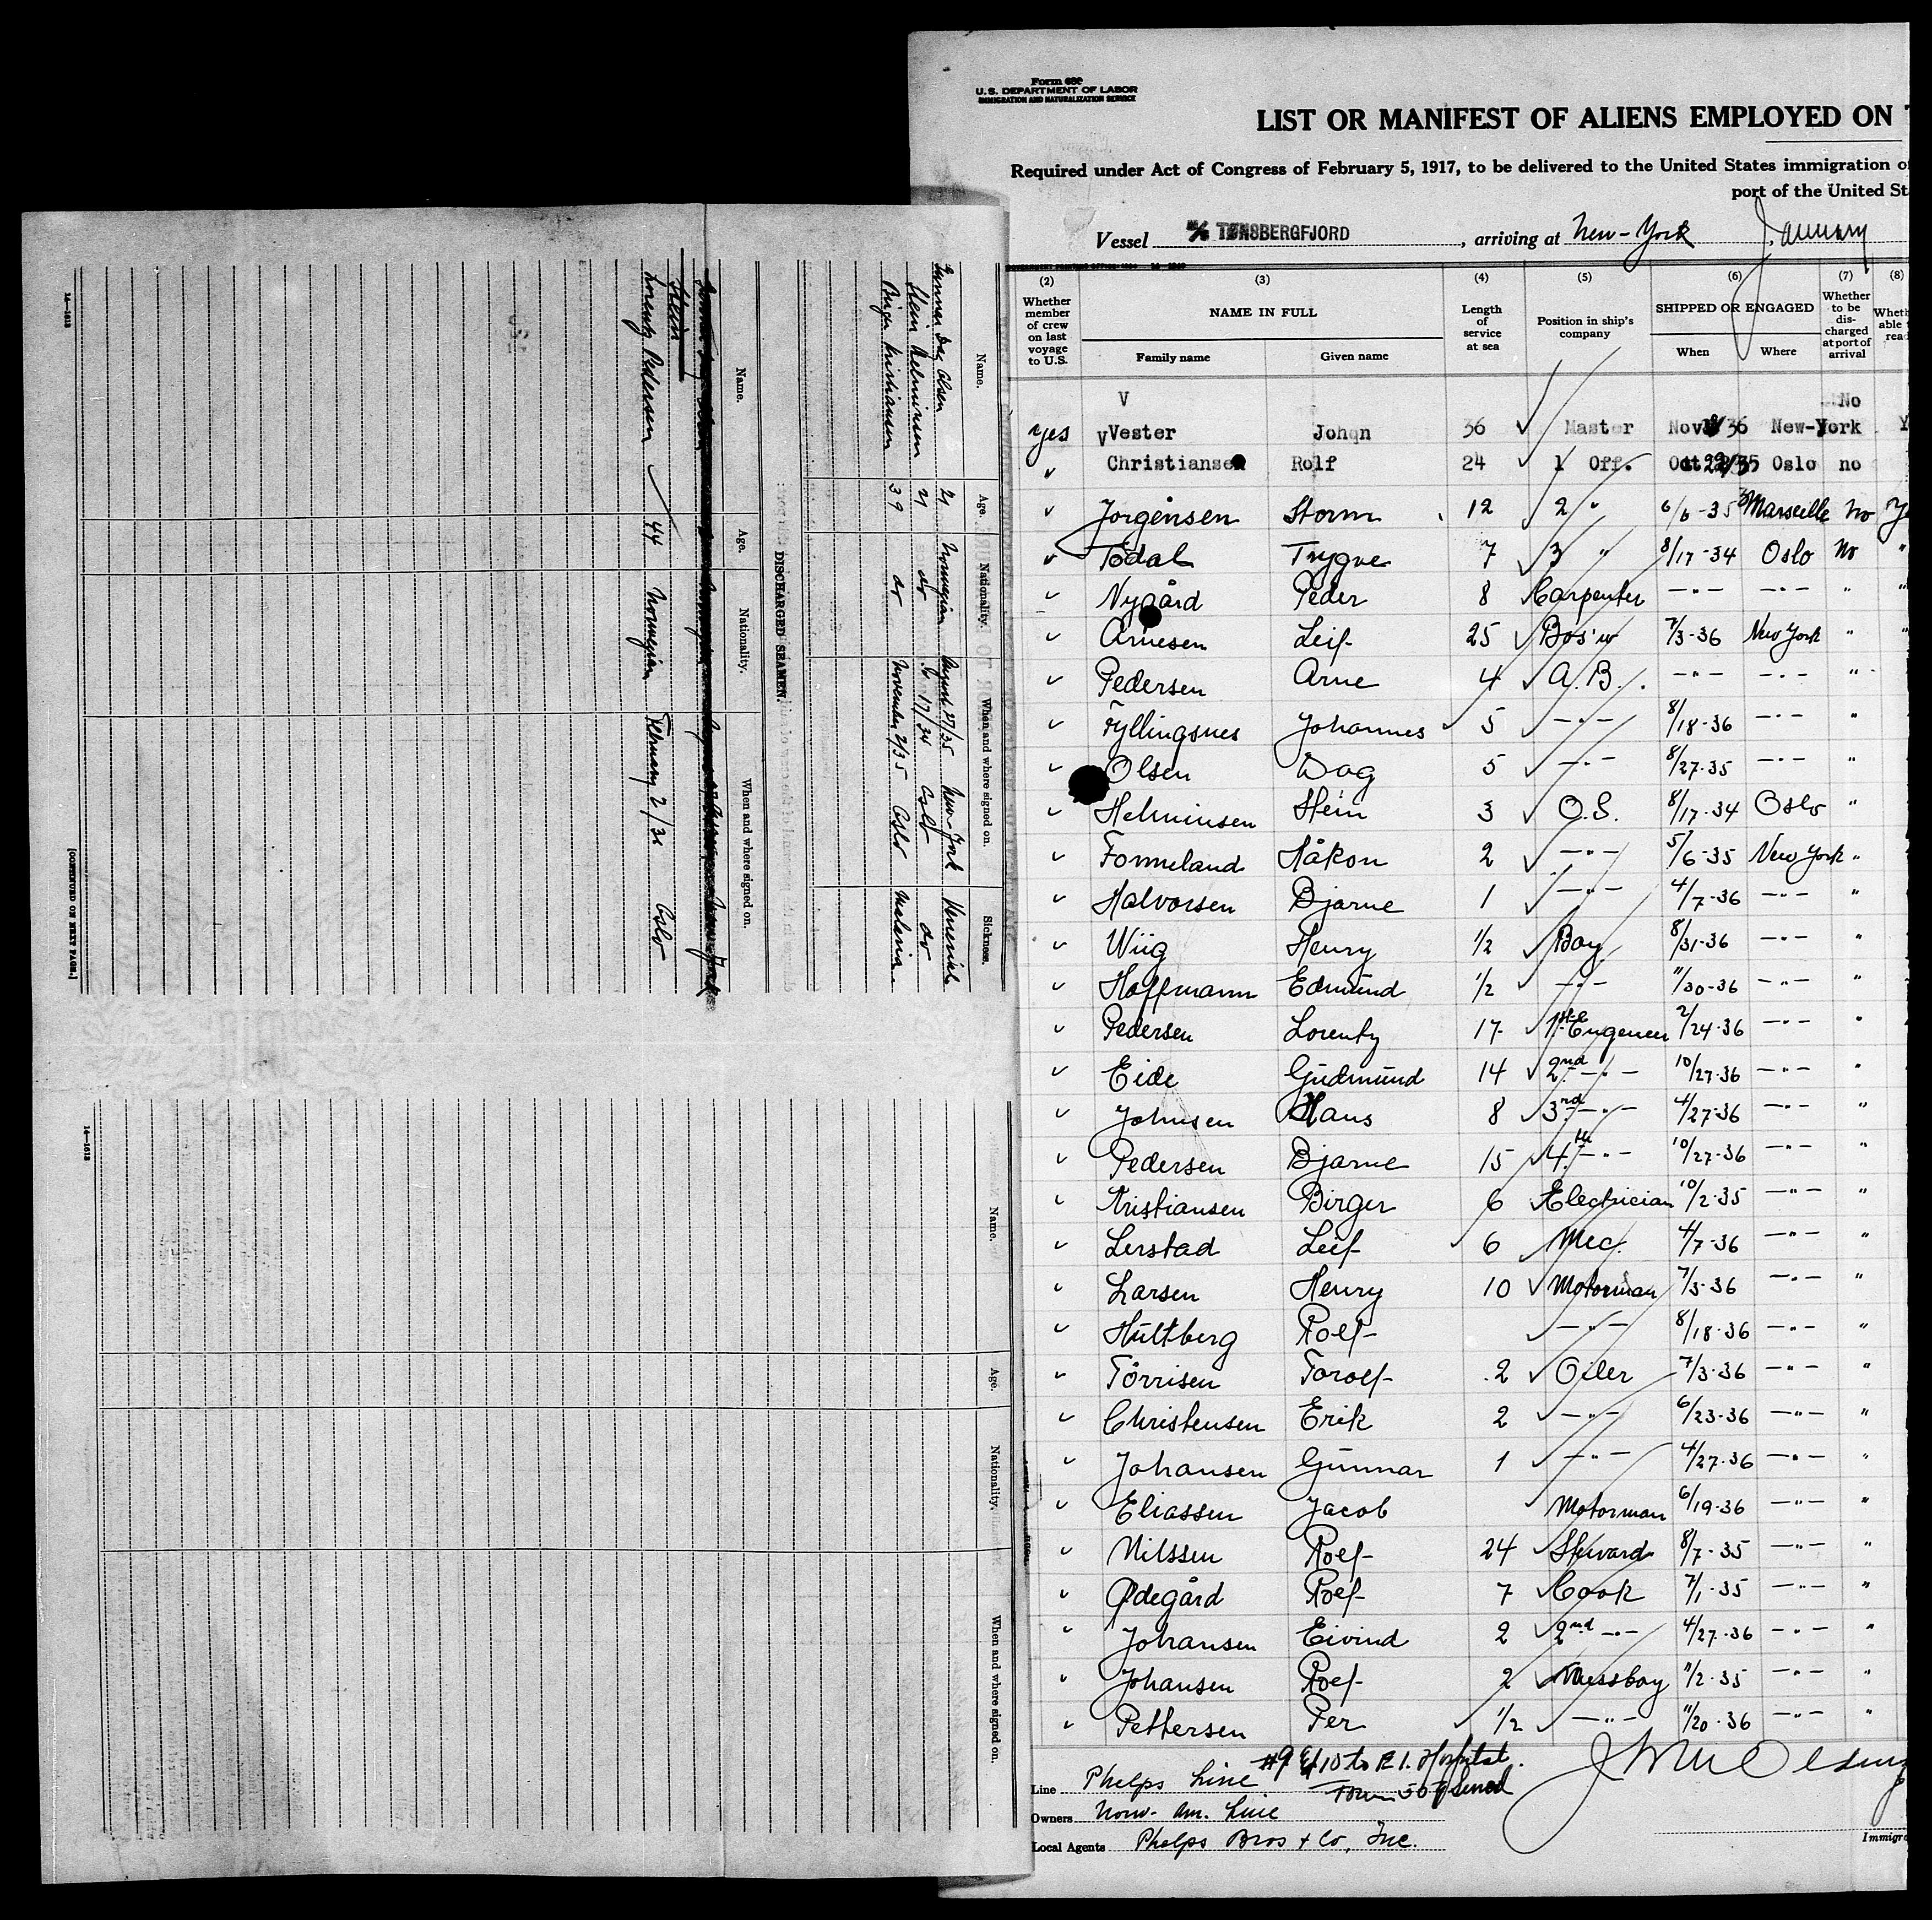 Form 680
U.S. DEPARTMENT OF LABOR
IMMIGRATION AND NATURALIZATION SERVICE
LIST OR MANIFEST OF ALIENS EMPLOYED ON
Required under Act of Congress of February 5, 1917, to be delivered to the United States immigration
port of the United St
Vessel M/S TØNSBERGFJORD , arriving at New-York , January
(2) (3) (4) (5) (6) (7) (8)
Whether member of crew on last voyage to U.S. NAME IN FULL Length of service at sea Position in ship's company SHIPPED OR ENGAGED Whether to be discharged at port of arrival
Family name Given name When Where
V No
yes V Vester Johan 36 Master Nov 36 New-York
Christiansen Rolf 24 1 Off. Oct 22/35 Oslo no
Jorgensen Storm 12 2 " 6/6-35 Marseille No
Todal Trygve 7 3 " 8/17-34 Oslo No "
Nygård Peder 8 Carpenter —"— —"— " "
Arnesen Leif 25 Bos'n 7/3-36 New York " "
Pedersen Arne 4 A.B. —"— —"— "
Fyllingsnes Johannes 5 —"— 8/18-36 —"— "
Olsen Dag 5 —"— 8/27-35 —"— "
Helminsen Stein 3 O.S. 8/17-34 Oslo "
Fonneland Håkon 2 —"— 5/6-35 New York "
Halvorsen Bjarne 1 —"— 4/7-36 —"— "
Wiig Henry 1/2 Boy 8/31-36 —"— "
Hoffmann Edmund 1/2 —"— 11/30-36 —"— "
Pedersen Lorentz 17 1st Engeneer 2/24-36 —"— "
Eide Gudmund 14 2nd —"— 10/27-36 —"— "
Johnsen Hans 8 3rd —"— 4/27-36 —"— "
Pedersen Bjarne 15 4th —"— 10/27-36 —"— "
Kristiansen Birger 6 Electrician 10/2-35 —"— "
Lerstad Leif 6 Mec. 4/7-36 —"— "
Larsen Henry 10 Motorman 7/3-36 —"— "
Hultberg Rolf —"— 8/18-36 —"— "
Törrisen Torolf 2 Oiler 7/3-36 —"— "
Christensen Erik 2 —"— 6/23-36 —"— "
Johansen Gunnar 1 —"— 4/27-36 —"— "
Eliassen Jacob Motorman 6/19-36 —"— "
Nilssen Rolf 24 Steward 8/7-35 —"— "
Ødegård Rolf 7 Cook 7/1-35 —"— "
Johansen Eivind 2 2nd —"— 4/27-36 —"— "
Johansen Rolf 2 Messboy 11/2-35 —"— "
Pettersen Per 1/2 —"— 11/20-36 —"— "
#9 & 10 to E.I. Hospital.
Line Phelps Line
Owners Norw- Am. Line
Local Agents Phelps Bros & Co, Inc.
Immigra
Name. Age. Nationality. When and where signed on. Sickness.
Dag Olsen 21 Norwegian August 27/35 New-York Venerial
Stein Helminsen 21 do 17/34 Oslo do
Birger Kristiansen 39 do November 2/35 Oslo Malaria
DISCHARGED SEAMEN.
Name. Age. Nationality. When and where signed on.
Stein
Lorentz Pedersen 44 Norwegian February 2/36 Oslo
14—1613
[CONTINUED ON NEXT PAGE.]
Name. Age. Nationality. When and where signed on.
14—1613